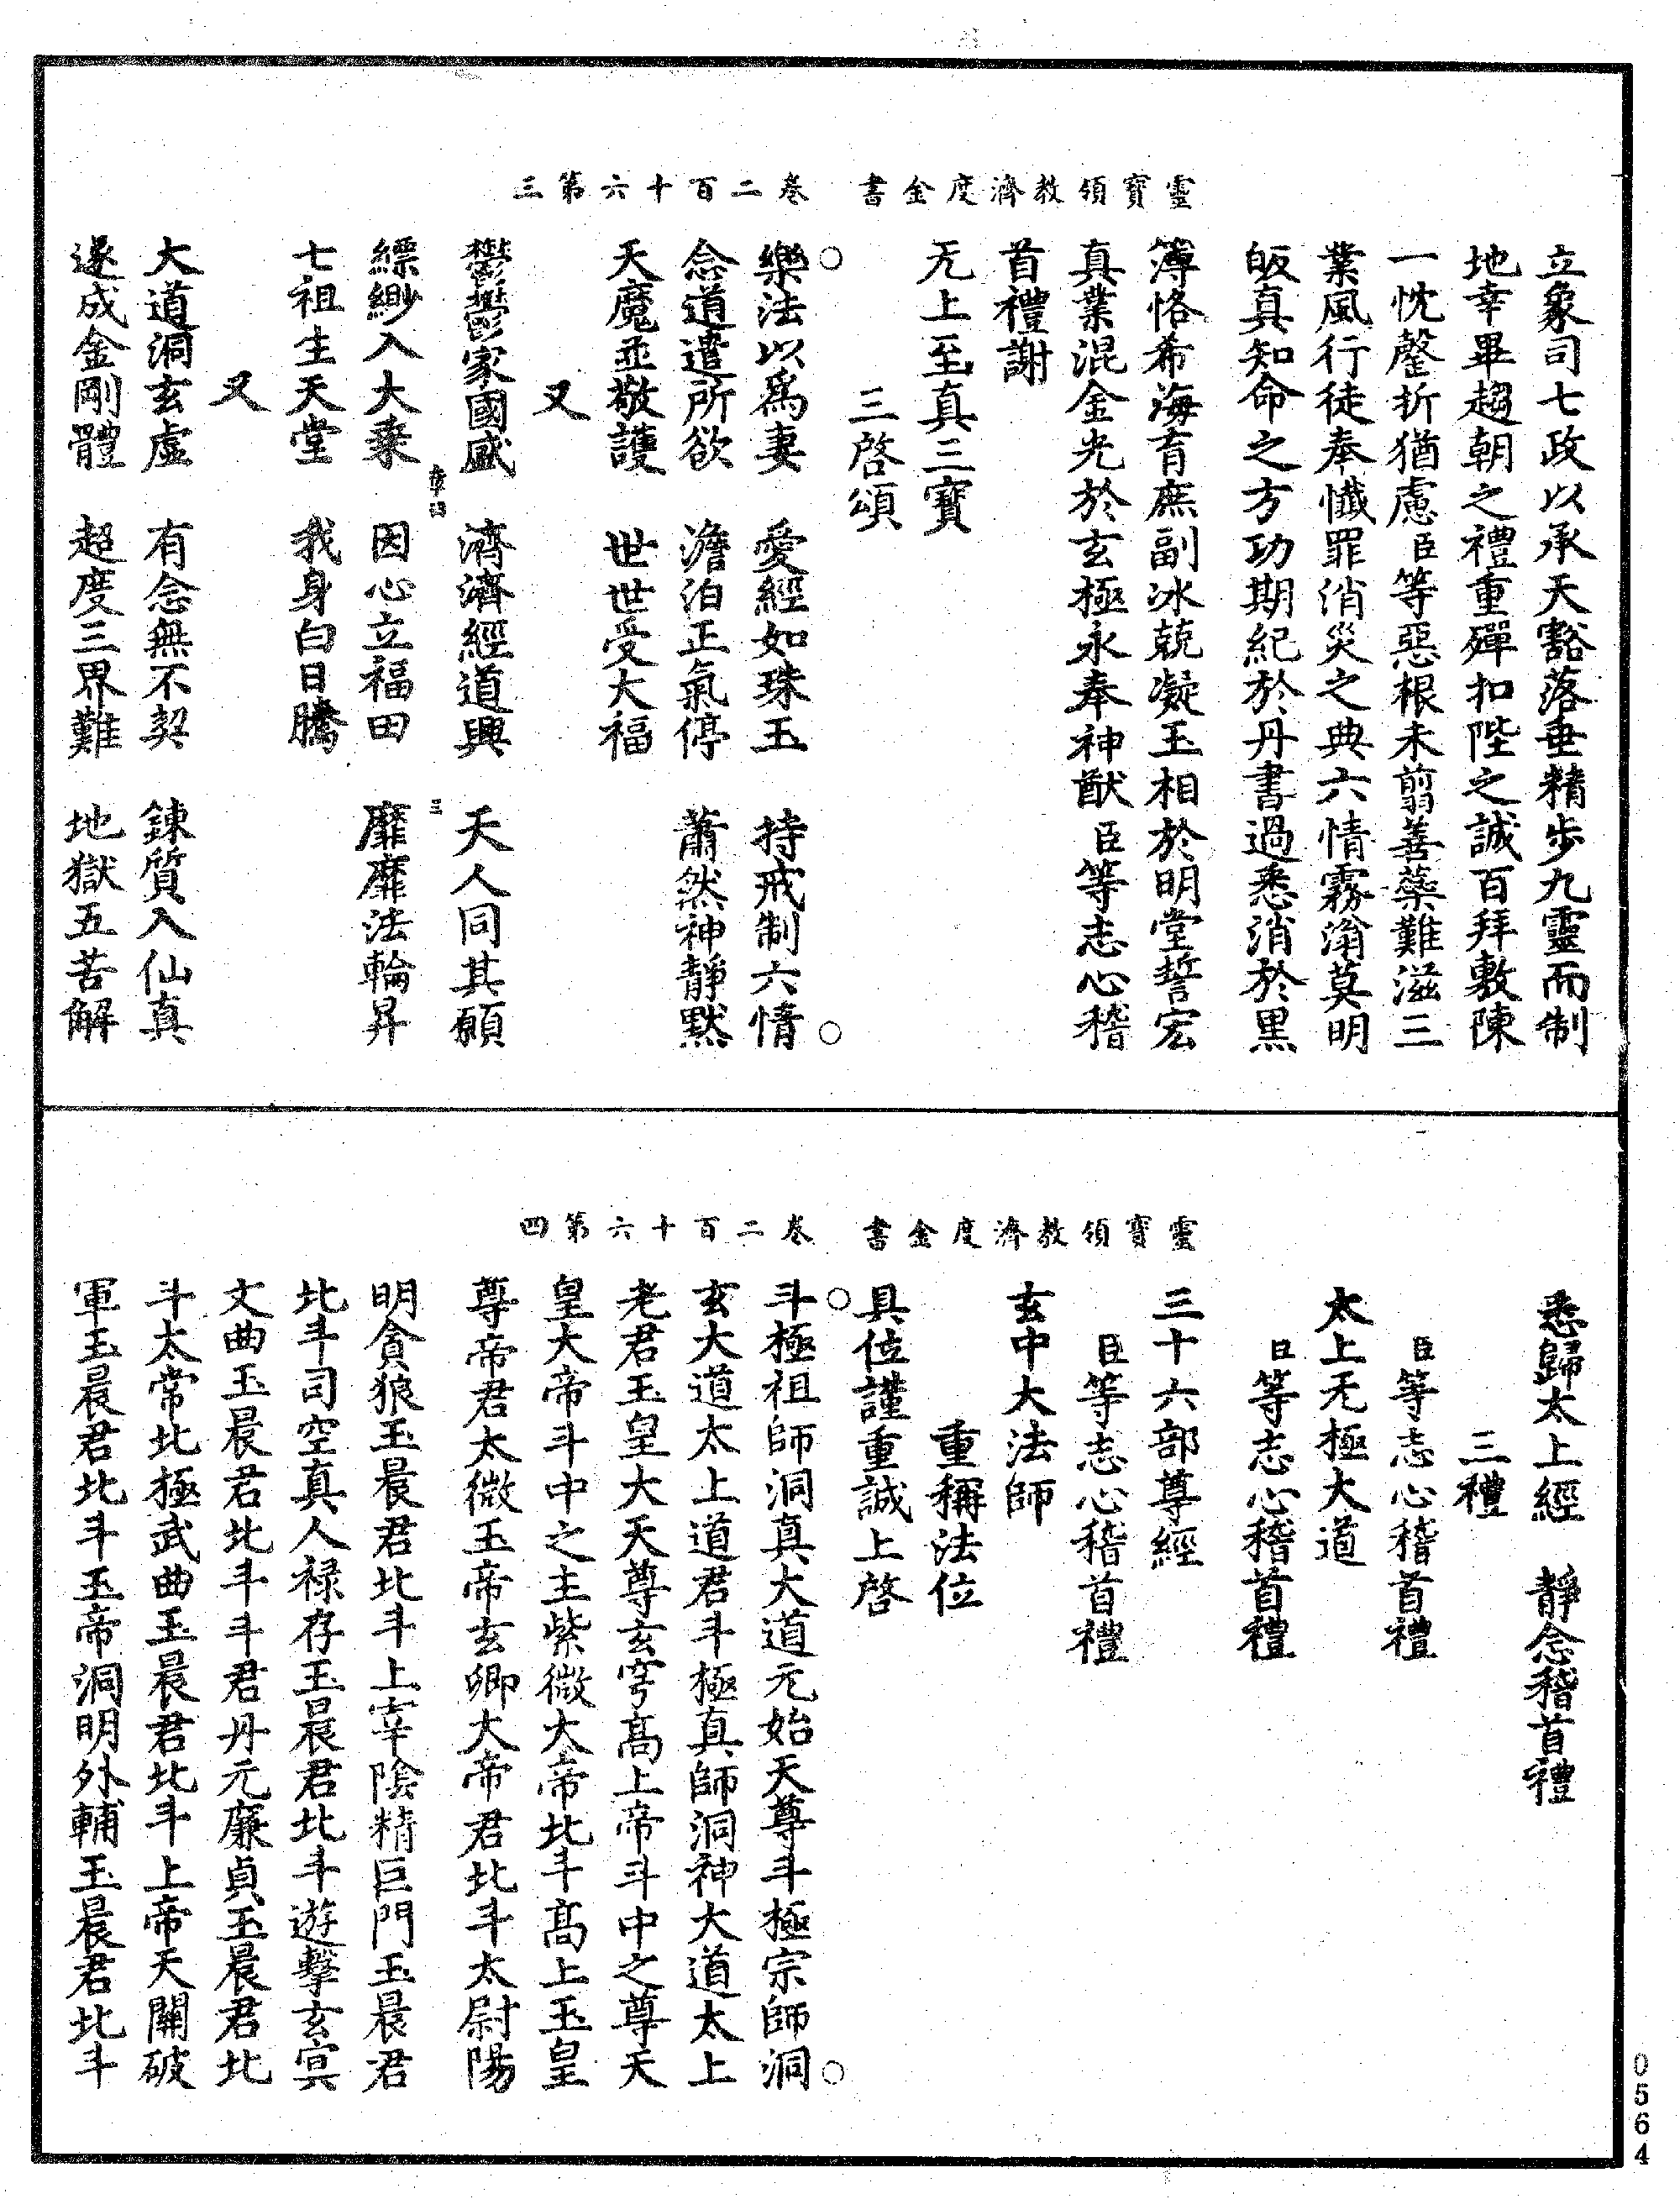 靈寶領教濟度金書　卷二百十六第三
立象司七政以承天豁落垂精步九靈而制
地幸畢趨朝之禮重殫扣陛之誠百拜敷陳
一忱罄折猶慮臣等惡根未翦善藥難滋三
業風行徒奉懺罪消災之典六情霧滃莫明
皈真知命之方功期紀於丹書過悉消於黑
簿恪希海育庶副冰兢凝玉相於明堂誓宏
真業混金光於玄極永奉神猷臣等志心稽
首禮謝
无上至真三寶
三啓頌
樂法以爲妻　愛經如珠玉　持戒制六情
念道遣所欲　澹泊正氣停　蕭然神靜默
天魔並敬護　世世受大福
又
鬱鬱家國盛　濟濟經道興　天人同其願
縹緲入大乘　因心立福田　靡靡法輪昇
七祖生天堂　我身白日騰
又
大道洞玄虛　有念無不契　鍊質入仙真
遂成金剛體　超度三界難　地獄五苦解
靈寶領教濟度金書　卷二百十六第四
悉歸太上經　靜念稽首禮
三禮
臣等志心稽首禮
太上无極大道
臣等志心稽首禮
三十六部尊經
臣等志心稽首禮
玄中大法師
重稱法位
具位謹重誠上啓
斗極祖師洞真大道元始天尊斗極宗師洞
玄大道太上道君斗極真師洞神大道太上
老君玉皇大天尊玄穹高上帝斗中之尊天
皇大帝斗中之主紫微大帝北斗高上玉皇
尊帝君太微玉帝玄卿大帝君北斗太尉陽
明貪狼玉晨君北斗上宰陰精巨門玉晨君
北斗司空真人祿存玉晨君北斗遊擊玄冥
文曲玉晨君北斗斗君丹元廉貞玉晨君北
斗太常北極武曲玉晨君北斗上帝天關破
軍玉晨君北斗玉帝洞明外輔玉晨君北斗
0564